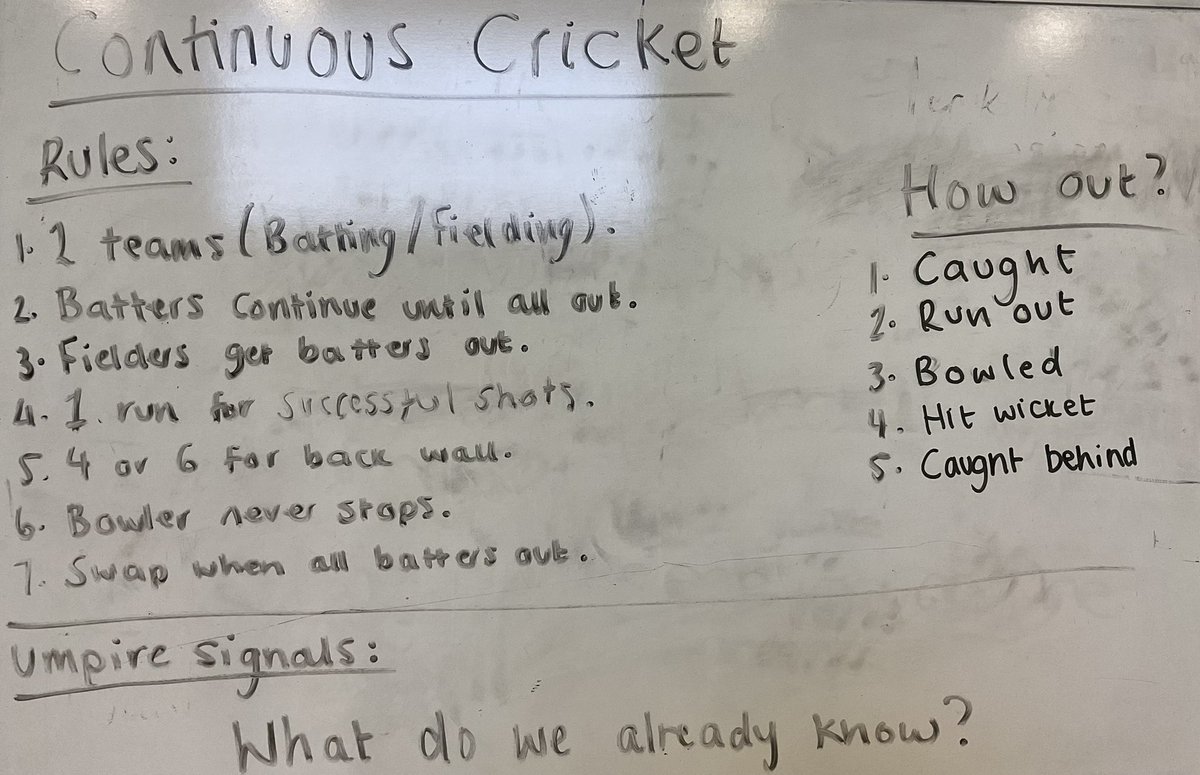 Continuous Cricket
Rules:
1. 2 teams (Batting/Fielding).
2. Batters continue until all out.
3. Fielders get batters out.
4. 1 run for successful shots.
5. 4 or 6 for back wall.
6. Bowler never stops.
7. Swap when all batters out.
How out?
1. Caught
2. Run out
3. Bowled
4. Hit wicket
5. Caught behind
Umpire signals:
What do we already know?